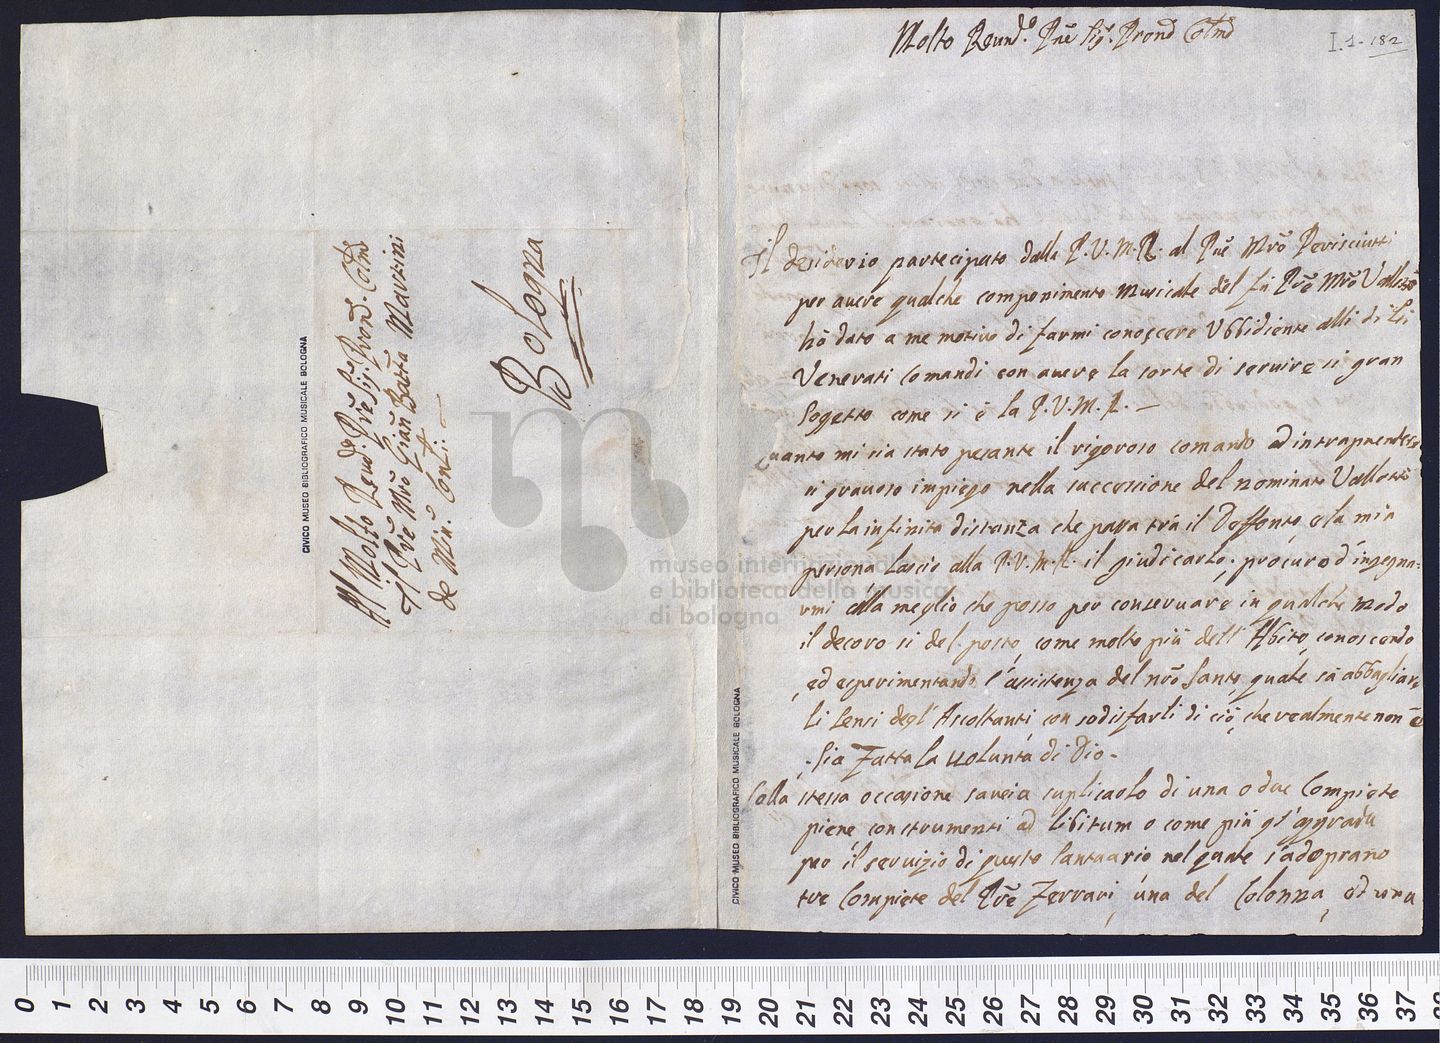 Al Molto Revdo Pre Sig. Pron. Colmo
Il Pre Mro Gian Batta Martini
de Min. Conli: —
Bologna
CIVICO MUSEO BIBLIOGRAFICO MUSICALE BOLOGNA
Molto Revndo. Pre Sig. Pron. Colmo
I.1.182
Il desiderio partecipato dalla P.V.M.R. al Pre Mro Perisciutti
per avere qualche componimento Musicale del fu Pre Mro Vallotti
hà dato a me motivo di farmi conoscere Ubbidiente alli di Lei
Venerati Comandi con avere la sorte di servire si gran
Sogetto come si è la P.V.M.R. —
Quanto mi sia stato pesante il rigoroso comando ad intraprendere
si gravoso impiego nella successione del nominato Vallotti
per la infinita distanza che passa trà il Deffonto, e la mia
persona lascio alla P.V.M.R. il giudicarlo; procuro d'ingegna-
rmi alla meglio che posso per conservare in qualche modo
il decoro si del posto, come molto più dell' Abito, conoscendo
ed esperimentando l'assistenza del nro Santo, quale sà abbagliare
li Sensi degl' Ascoltanti con sodisfarli di ciò, che realmente non è
Sia Fatta la volontà di Dio.
Colla stessa occasione saveia suplicarlo di una o due Compiete
piene con strumenti ad libitum o come più gl' aggrada
per il servizio di questo Santuario nel quale s'adoprano
tre Compiete del Pre Ferrari, una del Colonna, ed una
CIVICO MUSEO BIBLIOGRAFICO MUSICALE BOLOGNA
museo internazionale
e biblioteca della musica
di bologna
0 1 2 3 4 5 6 7 8 9 10 11 12 13 14 15 16 17 18 19 20 21 22 23 24 25 26 27 28 29 30 31 32 33 34 35 36 37 38